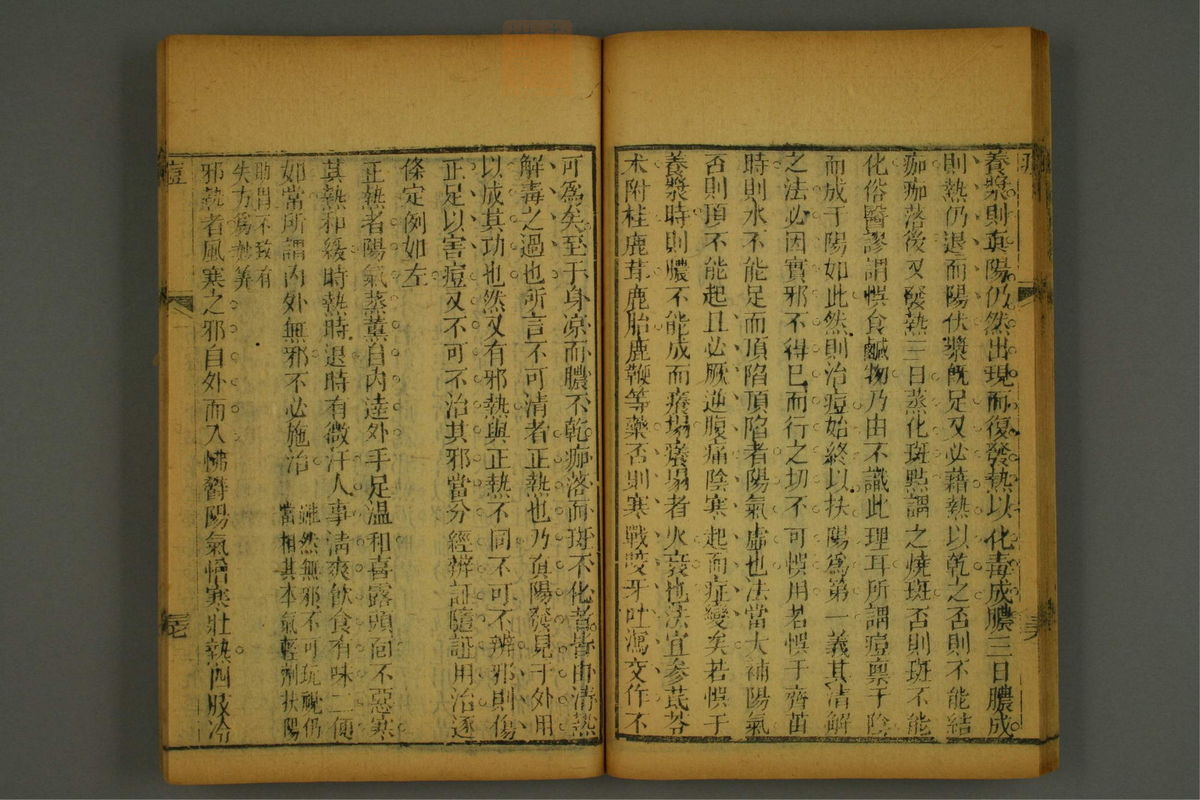 養漿則眞陽仍然出現而復發熱以化毒成膿三日膿成
則熱仍退而陽伏漿既足又必藉熱以乾之否則不能結
痂痂落後又發熱三日蒸化斑點謂之燒斑否則斑不能
化俗醫謬謂悞食鹹物乃由不識此理耳所謂痘禀于陰
而成于陽如此然則治痘始終以扶陽爲第一義其清解
之法必因實邪不得已而行之切不可悞用若悞于齊苗
時則水不能足而頂陷頂陷者陽氣虛也法當大補陽氣
否則頂不能起且必厥逆腹痛陰寒起而症變矣若悞于
養漿時則膿不能成而癢塌癢塌者火衰也法宜參芪苓
术附桂鹿茸鹿胎鹿鞭等藥否則寒戰咬牙吐瀉交作不
可為矣至于身凉而膿不乾痂落而斑不化者皆由清熱
解毒之過也所言不可清者正熱也乃眞陽發見于外用
以成其功也然又有邪熱與正熱不同不可不辨邪則傷
正足以害痘又不可不治其邪當分經辨証隨証用治逐
條定例如左
正熱者陽氣蒸薰自內達外手足溫和喜露頭面不惡寒
其熱和緩時熱時退時有微汗人事清爽飲食有味二便
如常所謂內外無邪不必施治
雖然無邪不可玩視仍
當相其本氣輕劑扶陽
助胃不致有
失方爲妙筭
邪熱者風寒之邪自外而入怫鬱陽氣憎寒壯熱四肢冷
痘